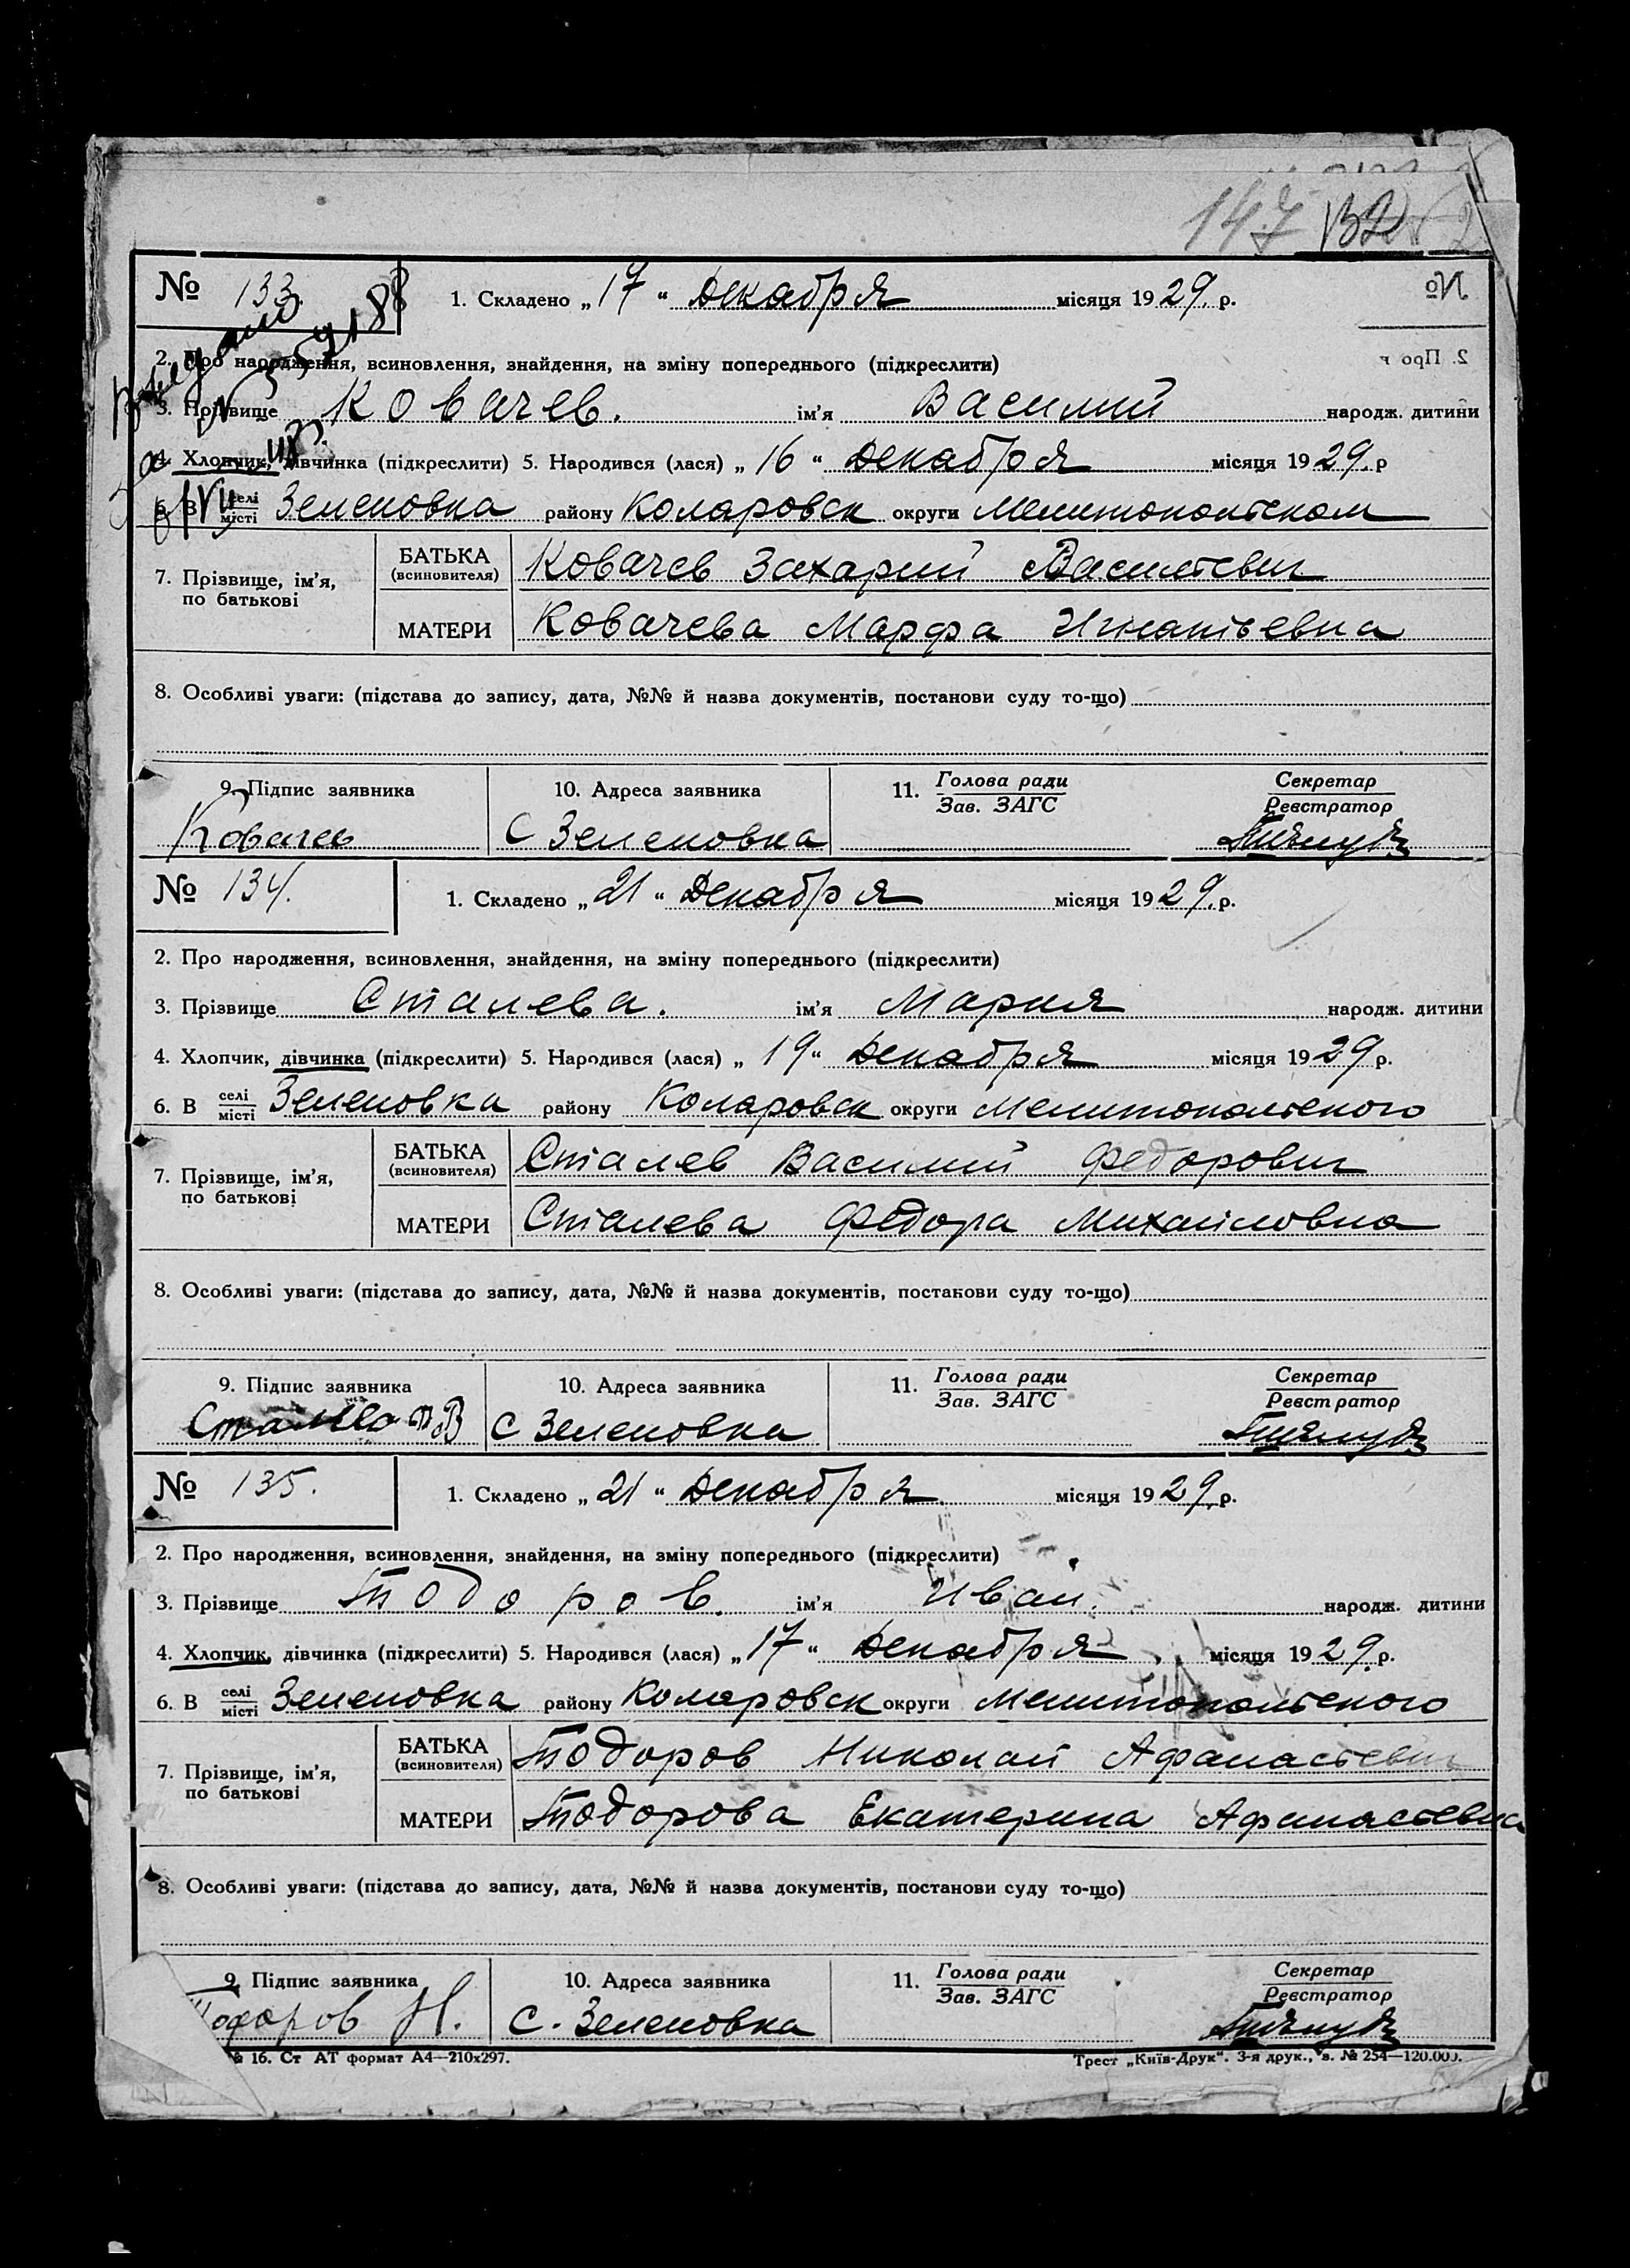 147
№ 133. 1. Складено „17“ Декабря місяця 1929. р.
2. Про народження, всиновлення, знайдення, на зміну попереднього (підкреслити)
3. Прізвище Ковачев. ім’я Василий народж. дитини
4. Хлопчик, дівчинка (підкреслити) 5. Народився (лася) „16“ Декабря місяця 1929. р
6. В селі/місті Зеленовка району Коларовск округи Мелитопольском
7. Прізвище, ім’я, по батькові
БАТЬКА (всиновителя) Ковачев Захарий Васильевич
МАТЕРИ Ковачева Марфа Игнатьевна
8. Особливі уваги: (підстава до запису, дата, №№ й назва документів, постанови суду то-що)
9. Підпис заявника 10. Адреса заявника 11. Голова ради/Зав. ЗАГС Секретар/Реєстратор
Ковачев С Зеленовка
№ 134. 1. Складено „21“ Декабря місяця 1929. р.
2. Про народження, всиновлення, знайдення, на зміну попереднього (підкреслити)
3. Прізвище Сталева. ім’я Мария народж. дитини
4. Хлопчик, дівчинка (підкреслити) 5. Народився (лася) „19“ Декабря місяця 1929 р.
6. В селі/місті Зеленовка району Коларовск округи Мелитопольского
7. Прізвище, ім’я, по батькові
БАТЬКА (всиновителя) Сталев Василий Федорович
МАТЕРИ Сталева Федора Михайловна
8. Особливі уваги: (підстава до запису, дата, №№ й назва документів, постанови суду то-що)
9. Підпис заявника 10. Адреса заявника 11. Голова ради/Зав. ЗАГС Секретар/Реєстратор
С Зеленовка
№ 135. 1. Складено „21“ Декабря місяця 1929. р.
2. Про народження, всиновлення, знайдення, на зміну попереднього (підкреслити)
3. Прізвище Тодоров. ім’я Иван. народж. дитини
4. Хлопчик, дівчинка (підкреслити) 5. Народився (лася) „17“ Декабря місяця 1929. р.
6. В селі/місті Зеленовка району Коларовск округи Мелитопольского
7. Прізвище, ім’я, по батькові
БАТЬКА (всиновителя) Тодоров Николай Афанасьевич
МАТЕРИ Тодорова Екатерина Афанасьевна
8. Особливі уваги: (підстава до запису, дата, №№ й назва документів, постанови суду то-що)
9. Підпис заявника 10. Адреса заявника 11. Голова ради/Зав. ЗАГС Секретар/Реєстратор
Тодоров Н. С. Зеленовка
№ 16. Ст АТ формат А4—210х297. Трест „Київ-Друк“. 3-я друк., з. № 254—120.000.